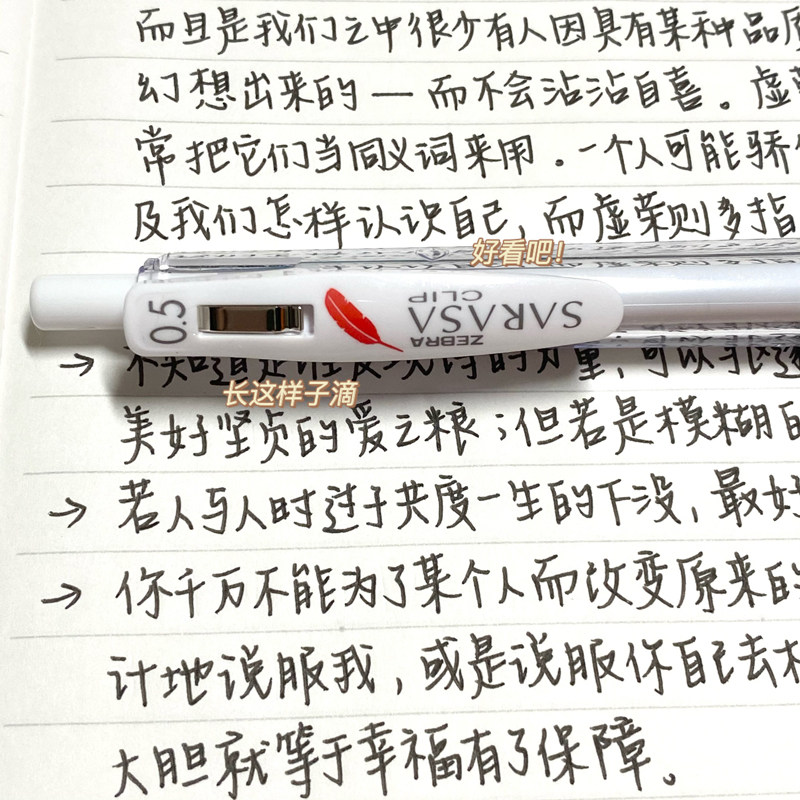 而且是我们之中很少有人因具有某种品质
幻想出来的 — 而不会沾沾自喜。虚
常把它们当同义词来用.一个人可能骄
及我们怎样认识自己,而虚荣则多指
好看吧!
0.5
ZEBRA
SARASA
CLIP
→ 不知道是
力量,可以
长这样子滴
美好坚贞的爱之粮;但若是模糊的
→ 若人与人时过于共度一生的下没,最好
→ 你千万不能为了某个人而改变原来的
计地说服我,或是说服你自己去相
大胆就等于幸福有了保障。